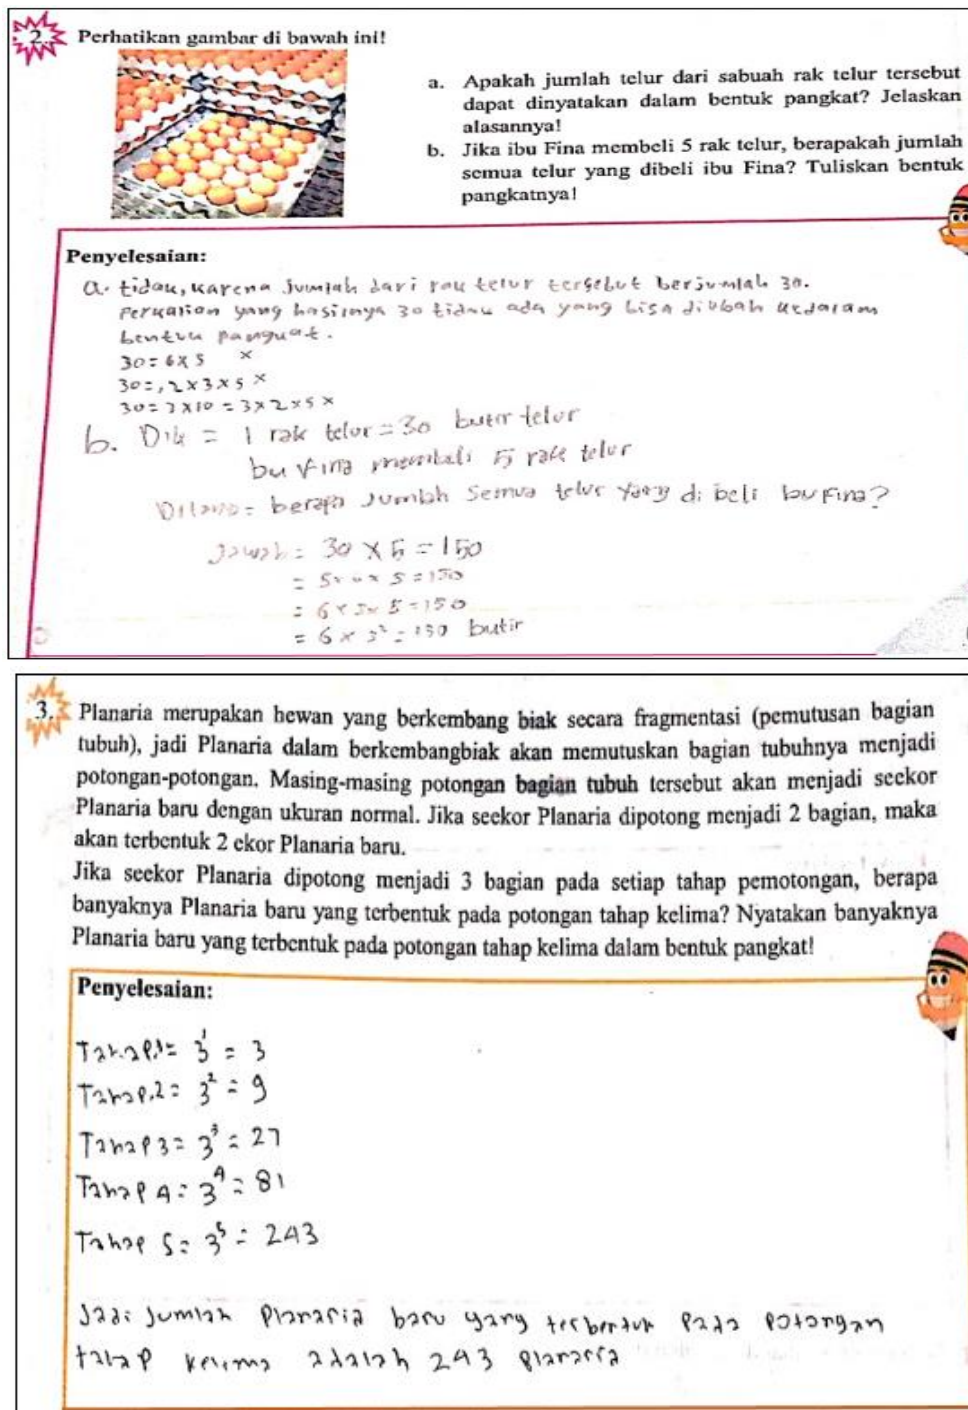 2. Perhatikan gambar di bawah ini!
a. Apakah jumlah telur dari sabuah rak telur tersebut
dapat dinyatakan dalam bentuk pangkat? Jelaskan
alasannya!
b. Jika ibu Fina membeli 5 rak telur, berapakah jumlah
semua telur yang dibeli ibu Fina? Tuliskan bentuk
pangkatnya!
Penyelesaian:
a. tidak, karena jumlah dari rak telur tersebut berjumlah 30.
Perkalian yang hasilnya 30 tidak ada yang bisa diubah kedalam
bentuk pangkat.
30 = 6 x 5 x
30 = , 2 x 3 x 5 x
30 = 3 x 10 = 3 x 2 x 5 x
b. Dik = 1 rak telur = 30 butir telur
bu Fina membeli 5 rak telur
= berapa Jumlah Semua telur yang di beli bu Fina?
Jawab = 30 x 5 = 150
= 5 x 5 = 150
= 6 x 5 x 5 = 150
= 6 x = 150 butir
3. Planaria merupakan hewan yang berkembang biak secara fragmentasi (pemutusan bagian
tubuh), jadi Planaria dalam berkembangbiak akan memutuskan bagian tubuhnya menjadi
potongan-potongan. Masing-masing potongan bagian tubuh tersebut akan menjadi seekor
Planaria baru dengan ukuran normal. Jika seekor Planaria dipotong menjadi 2 bagian, maka
akan terbentuk 2 ekor Planaria baru.
Jika seekor Planaria dipotong menjadi 3 bagian pada setiap tahap pemotongan, berapa
banyaknya Planaria baru yang terbentuk pada potongan tahap kelima? Nyatakan banyaknya
Planaria baru yang terbentuk pada potongan tahap kelima dalam bentuk pangkat!
Penyelesaian:
Tahap.1 = 3¹ = 3
Tahap.2 = 3² = 9
Tahap 3 = 3³ = 27
Tahap 4 = 3⁴ = 81
Tahap 5 = 3⁵ = 243
Jadi Jumlah Planaria baru yang terbentuk Pada Potongan
tahap kelima adalah 243 planaria